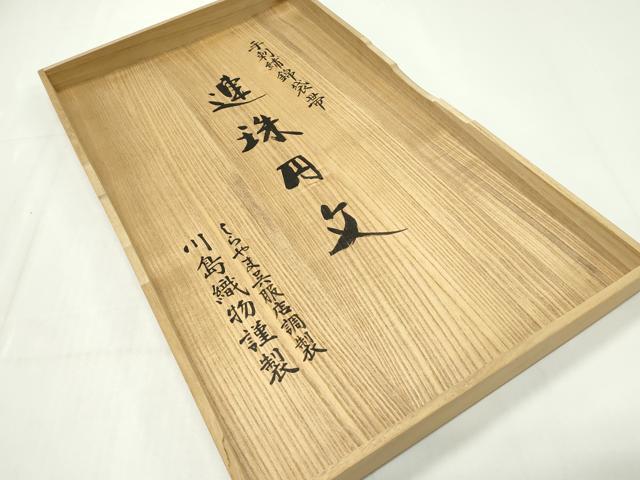 手刺繍錦袋帯
連珠円文
しらやま呉服店調製
川島織物謹製